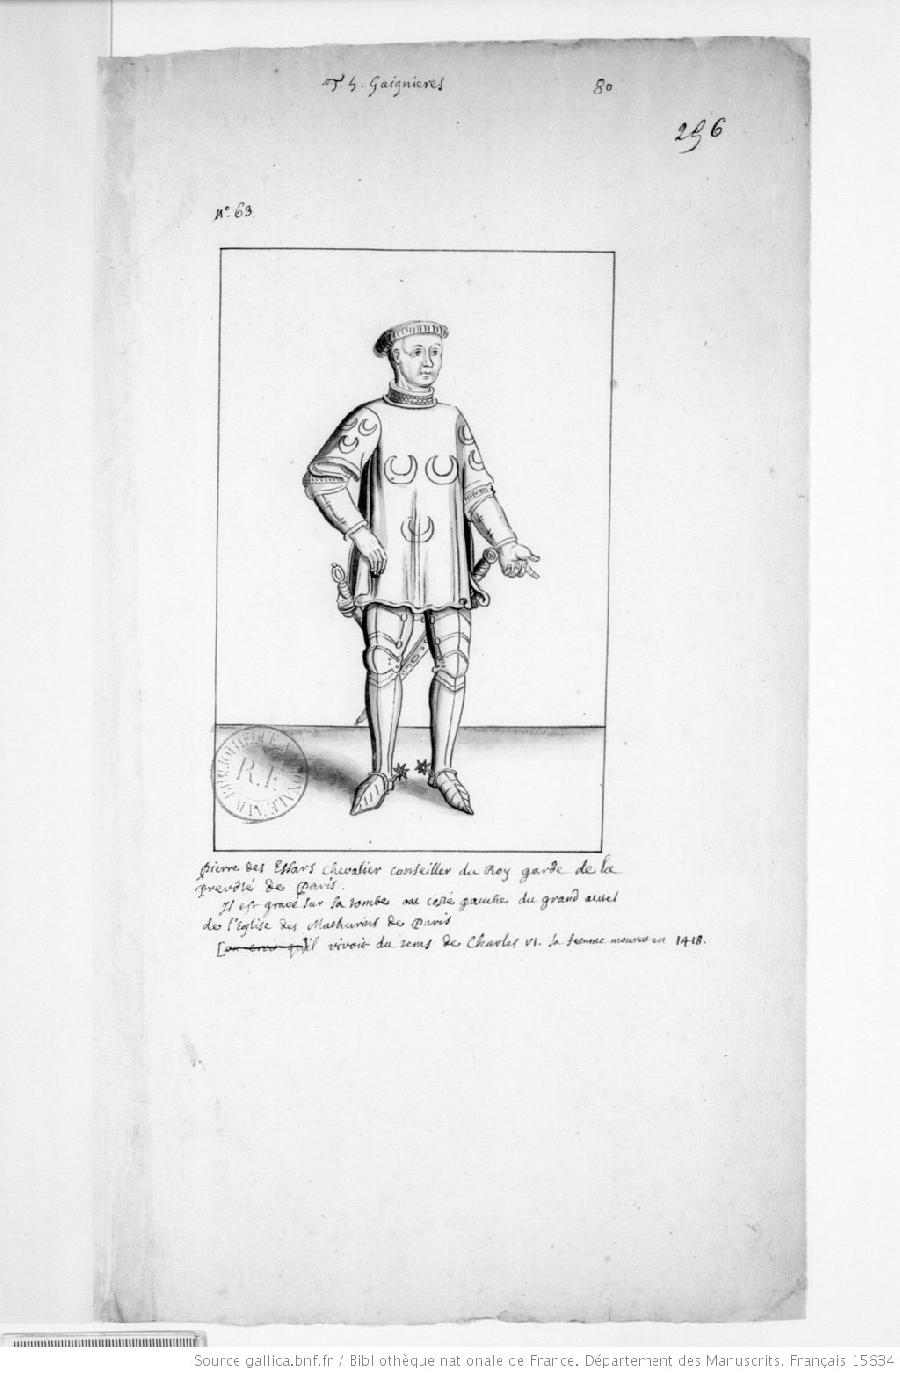 T. 4. Gaignieres
80
296
N.° 63.
BIBLIOTHEQUE NATIONALE MSS
R.F.
pierre des Essars chevalier conseiller du Roy garde de la
prevosté de paris.
Il est gravé sur sa tombe au costé gauche du grand autel
de l'Eglise des Mathurins de paris
[on croit qu]il vivoit du tems de Charles VI. sa femme mourut en 1418.
Source gallica.bnf.fr / Bibliothèque nationale de France. Département des Manuscrits. Français 15634